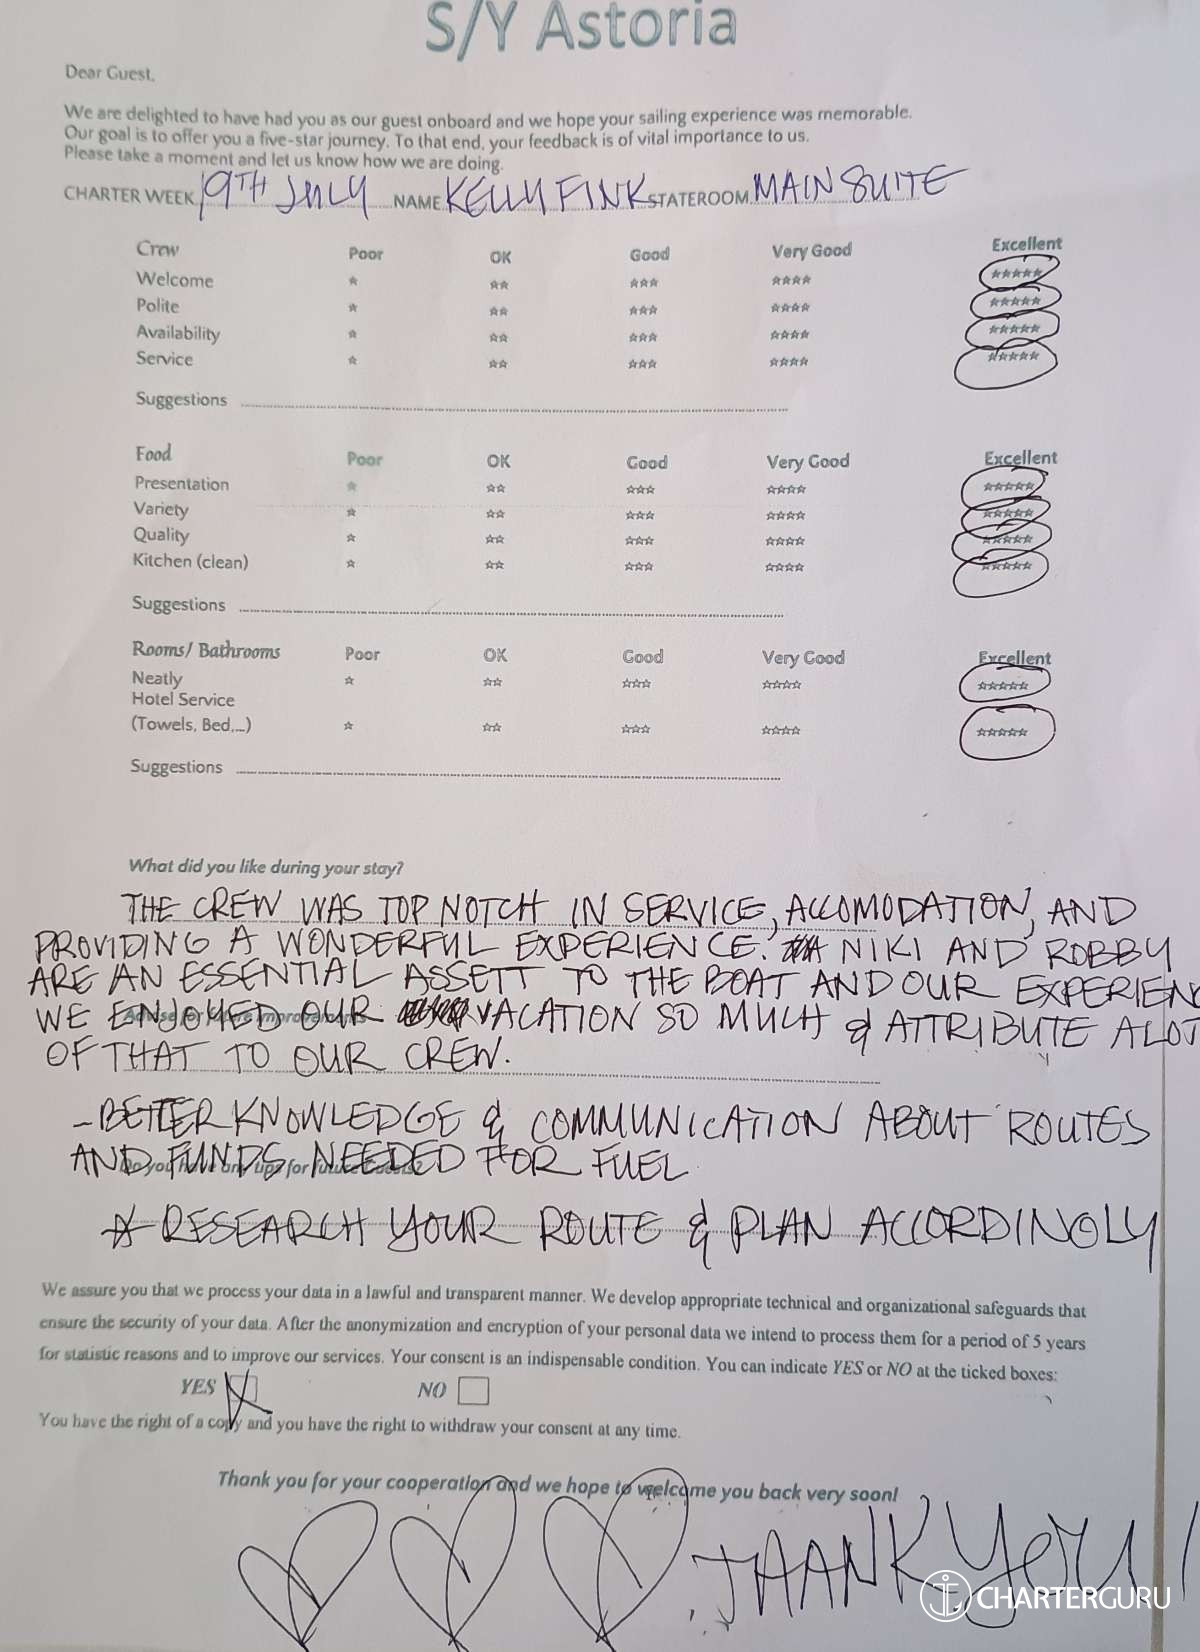 S/Y Astoria
Dear Guest,
We are delighted to have had you as our guest onboard and we hope your sailing experience was memorable.
Our goal is to offer you a five-star journey. To that end, your feedback is of vital importance to us.
Please take a moment and let us know how we are doing.
CHARTER WEEK 19TH JULY NAME KELLY FINK STATEROOM MAIN SUITE
Crew Poor OK Good Very Good Excellent
Welcome ☆ ☆☆ ☆☆☆ ☆☆☆☆ ☆☆☆☆☆
Polite ☆ ☆☆ ☆☆☆ ☆☆☆☆ ☆☆☆☆☆
Availability ☆ ☆☆ ☆☆☆ ☆☆☆☆ ☆☆☆☆☆
Service ☆ ☆☆ ☆☆☆ ☆☆☆☆ ☆☆☆☆☆
Suggestions
Food Poor OK Good Very Good Excellent
Presentation ☆ ☆☆ ☆☆☆ ☆☆☆☆ ☆☆☆☆☆
Variety ☆ ☆☆ ☆☆☆ ☆☆☆☆ ☆☆☆☆☆
Quality ☆ ☆☆ ☆☆☆ ☆☆☆☆ ☆☆☆☆☆
Kitchen (clean) ☆ ☆☆ ☆☆☆ ☆☆☆☆ ☆☆☆☆☆
Suggestions
Rooms/ Bathrooms Poor OK Good Very Good Excellent
Neatly ☆ ☆☆ ☆☆☆ ☆☆☆☆ ☆☆☆☆☆
Hotel Service
(Towels, Bed,...) ☆ ☆☆ ☆☆☆ ☆☆☆☆ ☆☆☆☆☆
Suggestions
What did you like during your stay?
THE CREW WAS TOP NOTCH IN SERVICE, ACCOMODATION, AND
PROVIDING A WONDERFUL EXPERIENCE. NIKI AND ROBBY
ARE AN ESSENTIAL ASSETT TO THE BOAT AND OUR EXPERIENC
WE ENJOYED OUR VACATION SO MUCH & ATTRIBUTE A LOT
OF THAT TO OUR CREW.
- BETTER KNOWLEDGE & COMMUNICATION ABOUT ROUTES
AND FUNDS NEEDED FOR FUEL
☆ RESEARCH YOUR ROUTE & PLAN ACCORDINGLY
We assure you that we process your data in a lawful and transparent manner. We develop appropriate technical and organizational safeguards that
ensure the security of your data. After the anonymization and encryption of your personal data we intend to process them for a period of 5 years
for statistic reasons and to improve our services. Your consent is an indispensable condition. You can indicate YES or NO at the ticked boxes:
YES NO
You have the right of a copy and you have the right to withdraw your consent at any time.
Thank you for your cooperation and we hope to welcome you back very soon!
THANK YOU!
CHARTERGURU